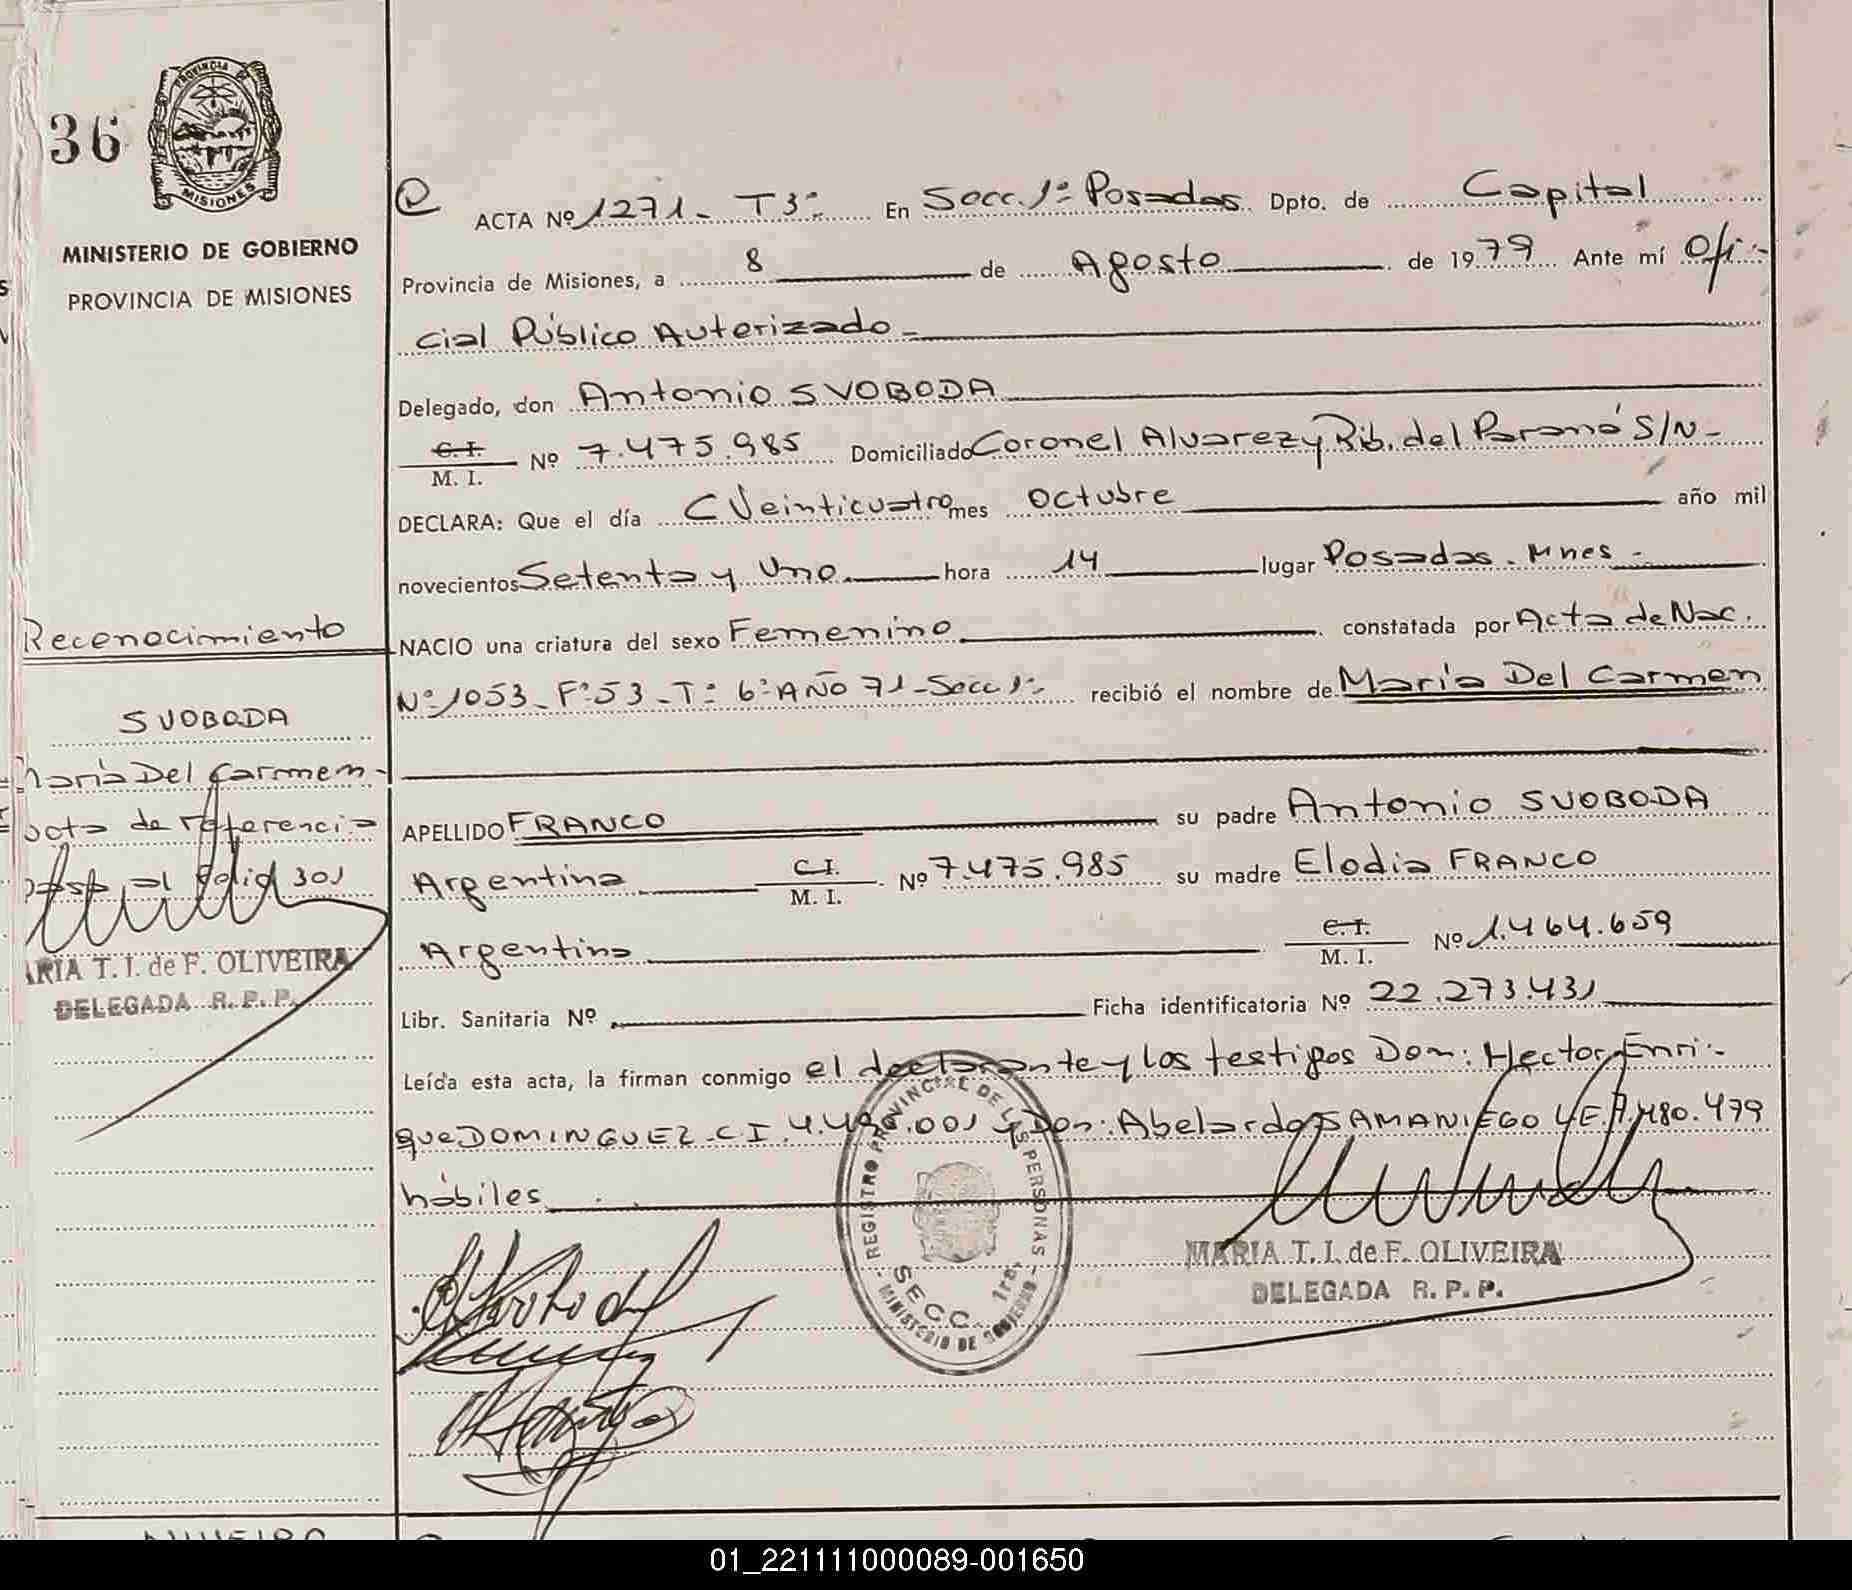 36
PROVINCIA DE
MISIONES
MINISTERIO DE GOBIERNO
PROVINCIA DE MISIONES
Reconocimiento
SVOBODA
María Del Carmen -
nota de referencia
pasa al folio 301
ARIA T. I. de F. OLIVEIRA
DELEGADA R. P. P.
ACTA Nº 1271 - T 3º En Secc. 1º Posadas Dpto. de Capital
Provincia de Misiones, a 8 de Agosto de 1979 Ante mí Ofi-
cial Público Autorizado -
Delegado, don Antonio SVOBODA
C. I.
M. I. Nº 7.475.985 Domiciliado Coronel Alvarez y Rib. del Paraná S/N -
DECLARA: Que el día Veinticuatro mes octubre año mil
novecientos Setenta y Uno hora 14 lugar Posadas - Mnes -
NACIO una criatura del sexo Femenino constatada por Acta de Nac.
Nº 1053 - Fº 53 - Tº 6º AÑO 71 - Secc 1º recibió el nombre de María Del Carmen
APELLIDO FRANCO su padre Antonio SVOBODA
Argentina C. I.
M. I. Nº 7.475.985 su madre Elodia FRANCO
Argentina C. I.
M. I. Nº 1.464.659
Libr. Sanitaria Nº Ficha identificatoria Nº 22.273.431
Leída esta acta, la firman conmigo el declarante y los testigos Don: Hector Enri-
que DOMINGUEZ - C I. y Don: Abelardo SAMANIEGO
hábiles
REGISTRO PROVINCIAL DE LAS PERSONAS - MINISTERIO DE GOBIERNO -
SECC. 1ra.
MARIA T. I. de F. OLIVEIRA
DELEGADA R. P. P.
01_221111000089-001650